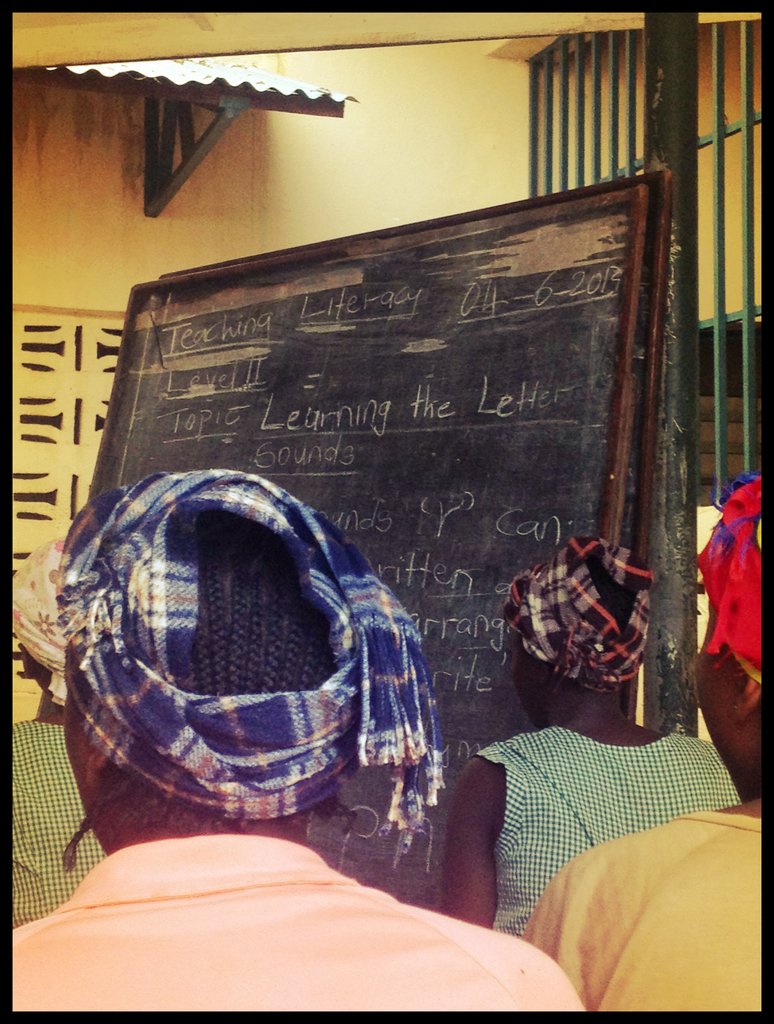 Teaching Literacy 04-6-2013
Level II =
Topic Learning the Letter
Sounds
Can
ritten
arrang
rite'